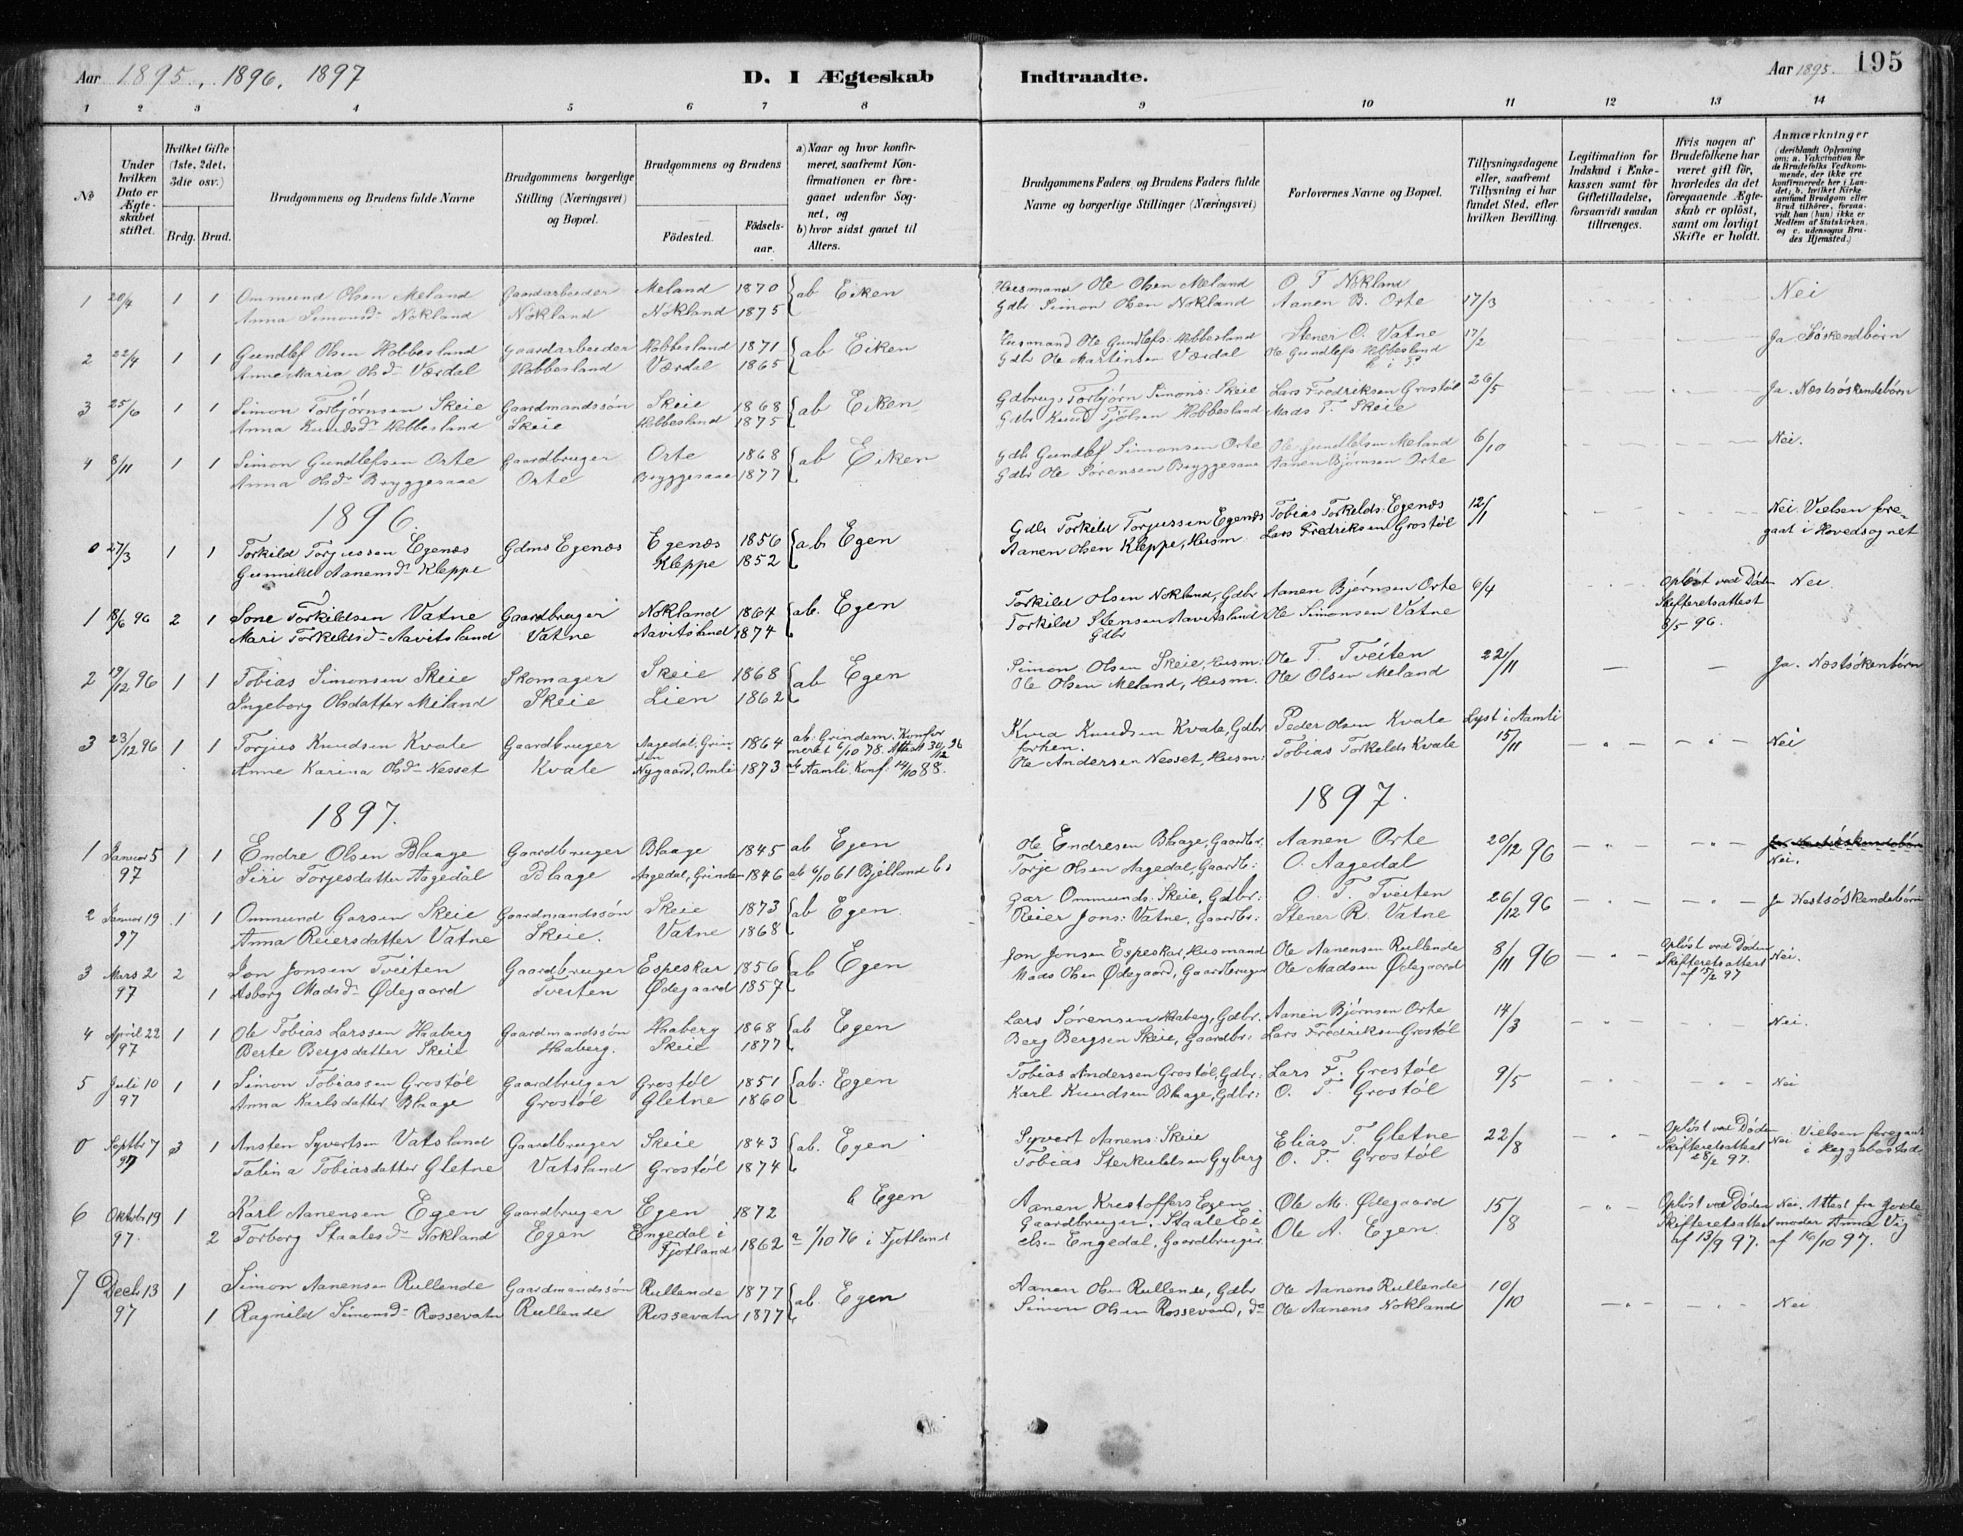 Aar 1895, 1896, 1897
D. I Ægteskab Indtraadte.
Aar 1895. 195
1 2 3 4 5 6 7 8 9 10 11 12 13 14
No
Under hvilken Dato er Ægteskabet stiftet.
Hvilket Gifte (1ste, 2det, 3die osv.)
Brdg. Brud.
Brudgommens og Brudens fulde Navne
Brudgommens borgerlige Stilling (Næringsvei) og Bopæl.
Brudgommens og Brudens
Födested. Födselsaar.
a) Naar og hvor konfirmeret, saafremt Konfirmationen er foregaaet udenfor Sognet, og
b) hvor sidst gaaet til Alters.
Brudgommens Faders og Brudens Faders fulde Navne og borgerlige Stillinger (Næringsvei)
Forlovernes Navne og Bopæl.
Tillysningsdagene eller, saafremt Tillysning ei har fundet Sted, efter hvilken Bevilling.
Legitimation for Indskud i Enkekassen samt for Giftetilladelse, forsaavidt saadan tiltrænges.
Hvis nogen af Brudefolkene har været gift för, hvorledes da det foregaaende Ægteskab er oplöst, samt om lovligt Skifte er holdt.
Anmærkninger (deriblandt Oplysning om: a. Vakcination for de Brudefolks Vedkommende, der ikke ere konfirmerede her i Landet; b. hvilket Kirkesamfund Brudgom eller Brud tilhörer, forsaavidt han (hun) ikke er Medlem af Statskirken, og c. udensogns Brudes Hjemsted.)
1 20/4 1 1 Ommund Olsen Meland Gaardarbeider Meland 1870 ab Eiken Husmand Ole Olsen Meland O. T. Nökland 17/3 Nei
Anna Simonsd. Nökland Nökland Nökland 1875 Gdbr Simon Olsen Nökland Aanen B. Orte
2 22/4 1 1 Gundlef Olsen Hobbesland Gaardarbeider Hobbesland 1871 ab Eiken Husmand Ole Gundlefs. Hobbesland Stener O. Vatne 17/2 Ja Söskendbörn
Anne Maria Olsd. Værdal Hobbesland Værdal 1865 Gdbr Ole Martinsen Værdal Ole Gundlefs Hobbesland
3 25/6 1 1 Simon Torbjörnsen Skeie Gaardmandssön Skeie 1868 ab Eiken Gdbrug. Torbjörn Simons: Skeie Lars Fredriksen Grostöl 26/5 Ja. Næstsöskendebörn
Anna Knudsd. Hobbesland Skeie Hobbesland 1875 Gdbr Knud Tjölsen Hobbesland Mads T. Skeie
4 8/11 1 1 Simon Gundlefsen Orte Gaardbruger Orte 1868 ab Eiken Gdb Gundlef Simonsen Orte Ole Gundlefsen Meland 6/10 Nei.
Anna Olsd. Bryggesaae Orte Bryggesaae 1877 Gdbr Ole Sörensen Bryggesaae Aanen Björnsen Orte
1896.
0 27/3 1 1 Torkild Torjussen Egenæs Gdms Egenæs Egenæs 1856 ab Egen Gdb Torkild Torjussen Egenæs Tobias Torkilds. Egenæs 12/1 Nei. Vielsen fore-
Gunnild Aanensd. Kleppe Kleppe 1852 Aanen Olsen Kleppe, Husm Lars Fredriksen Grostöl gaat i Hovedsognet
1 18/6 96 2 1 Sone Torkildsen Vatne Gaardbruger Nökland 1864 ab. Egen Torkild Olsen Nökland, Gdbr Aanen Bjørnsen Orte 6/4 Oplöst ved Döden Nei
Mari Torkeldsd. Aavitsland Vatne Aavitsland 1874 Torkild Stensen Aavitsland Gdbr Ole Simonsen Vatne Skifteretsattest 8/5 96.
2 19/12 96 1 1 Tobias Simonsen Skeie Skomager Skeie 1868 ab Egen Simon Olsen Skeie, Husm: Ole T. Tveiten 22/11 Ja. Næstsökenbörn
Ingeborg Olsdatter Miland Skeie Lien 1862 Ole Olsen Meland, Husm. Ole Olsen Meland
3 23/12 96 1 1 Torjus Knudsen Kvale Gaardbruger Aagedal, Grindem 1864 ab: Grindem. Konfirmeret 6/10 78. Attest 30/12 96 Knud Knudsen Kvale, Gdbr Peder Olsen Kvale Lyst i Aamli 15/11 Nei
Anne Karina Olsd. Nesset Kvale Nygaard, Omli 1873 ab Aamli. Konf. 14/10 88. Ole Andersen Nesset, Husm: Tobias Torkelds Kvale
1897. 1897.
1 Januar 5 97 1 1 Endre Olsen Blaage Gaardbruger Blaage 1845 ab Egen Ole Endresen Blaage, Gaardbr. Aanen Orte 20/12 96
Siri Torjesdatter Aagedal Blaage Aagedal, Grindem 1846 ab 6/10 61 Bjelland Torje Olsen Aagedal, Gaardb: O. Aagedal Nei.
2 Januar 19 97 1 1 Ommund Garsen Skeie Gaardmandssön Skeie 1873 ab Egen Gar Ommunds. Skeie, Gdbr: O. T. Tveiten 26/12 96 Ja Næstsöskendebörn
Anna Reiersdatter Vatne Skeie. Vatne 1868 Reier Jons: Vatne, Gaardbr: Stener R. Vatne
3 Mars 2 97 2 Jon Jonsen Tveiten Gaardbruger Espeskar 1856 ab Egen Jon Jonsen Espeskar, Husmand Ole Aanensen Rullende 8/11 96 Oplöst ved Döden Nei.
1 Asborg Madsd. Ødegaard Tveiten Ødegaard 1857 Mads Olsen Ødegaard, Gaardbruger Ole Madsen Ødegaard Skifteretsattest af 15/2 97
4 April 22 97 1 1 Ole Tobias Larssen Haaberg Gaardmandssön Haaberg 1868 ab Egen Lars Sörensen Haaberg, Gdbr. Aanen Bjørnsen Orte 14/3 Nei.
Berte Bergsdatter Skeie Haaberg. Skeie 1877 Berg Bergsen Skeie, Gaardbr: Lars Fredriksen Grostöl
5 Juli 10 97 1 1 Simon Tobiassen Grostöl Gaardbruger Grostöl 1851 ab: Egen Tobias Andersen Grostöl, Gdbr: Lars F. Grostöl 9/5 Nei
Anna Karlsdatter Blaage Grostöl Gletne 1860 Karl Knudsen Blaage, Gdbr: O. T. Grostöl
0 Septbr 7 97 3 1 Ansten Syvertsen Vatsland Gaardbruger Skeie 1843 ab. Egen Syvert Aanens: Skeie Elias T. Gletne 22/8 Oplöst ved Döden Nei Vielsen foregaat
Talina Tobiasdatter Gletne Vatsland Grostöl 1874 Tobias Sterkuldsen Gyberg O. T. Grostöl Skifteretsattest 28/2 97. i Heggebostad
6 Oktob 19 97. 1 Karl Aanensen Egen Gaardbruger Egen 1872 b Egen Aanen Kristoffers Egen Gaardbruger. Ole M. Ødegaard 15/8 Oplöst ved Döden Nei. Attest fra Jordemoder Anna Vig
2 Torborg Staalesd. Nökland Egen Engedal i Fjotland 1862 a 1/10 76 i Fjotland Staale Eielsen Engedal, Gaardbruger. Ole A. Egen Skifteretsattest af 13/9 97. af 16/10 97.
7 Decb. 13 97 1 Simon Aanensen Rullende Gaardmandssön Rullende 1877 ab Egen Aanen Olsen Rullende, Gdbr Ole Aanens Rullende 10/10 Nei
1 Ragnild Simonsd. Rossevatn Rullende Rossevatn 1877 Simon Olsen Rossevand, do Ole Aanens Nökland